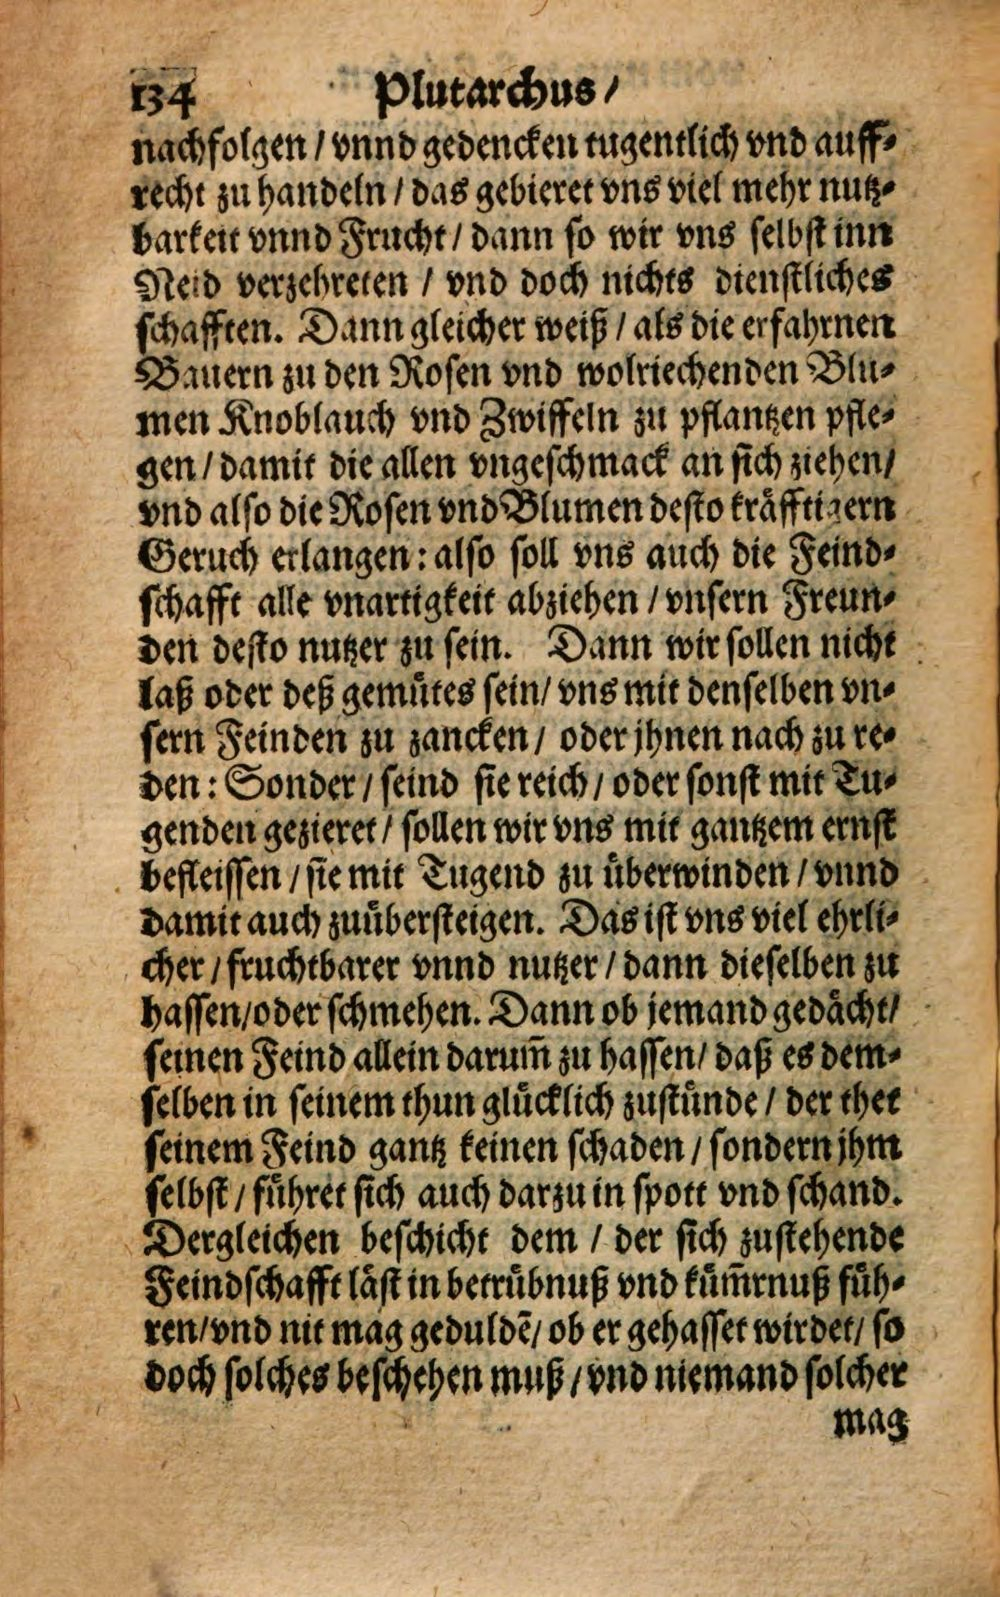 134 Plutarchus /
nachfolgen / vnnd gedencken tugentlich vnd auff⸗
recht zu handeln / das gebieret vns viel mehr nutz⸗
barkeit vnnd Frucht / dann so wir vns selbst inn
Neid verzehreten / vnd doch nichts dienstliches
schafften. Dann gleicher weiß / als die erfahrnen
Bauern zu den Rosen vnd wolriechenden Blu⸗
men Knoblauch vnd Zwiffeln zu pflantzen pfle⸗
gen / damit die allen vngeschmack an sich ziehen /
vnd also die Rosen vnd Blumen desto kräfftigern
Geruch erlangen: also soll vns auch die Feind⸗
schafft alle vnartigkeit abziehen / vnsern Freun⸗
den desto nutzer zu sein. Dann wir sollen nicht
laß oder deß gemütes sein / vns mit denselben vn⸗
sern Feinden zu zancken / oder jhnen nach zu re⸗
den: Sonder / seind sie reich / oder sonst mit Tu⸗
genden gezieret / sollen wir vns mit gantzem ernst
befleissen / sie mit Tugend zu überwinden / vnnd
damit auch zuübersteigen. Das ist vns viel ehrli⸗
cher / fruchtbarer vnnd nutzer / dann dieselben zu
hassen / oder schmehen. Dann ob jemand gedächt /
seinen Feind allein darum̃ zu hassen / daß es dem⸗
selben in seinem thun glücklich zustünde / der thet
seinem Feind gantz keinen schaden / sondern jhm
selbst / führet sich auch darzu in spott vnd schand.
Dergleichen beschicht dem / der sich zustehende
Feindschafft läst in betrübnuß vnd küm̃rnuß füh⸗
ren / vnd nit mag geduldẽ / ob er gehasset wirdet / so
doch solches beschehen muß / vnd niemand solcher
mag